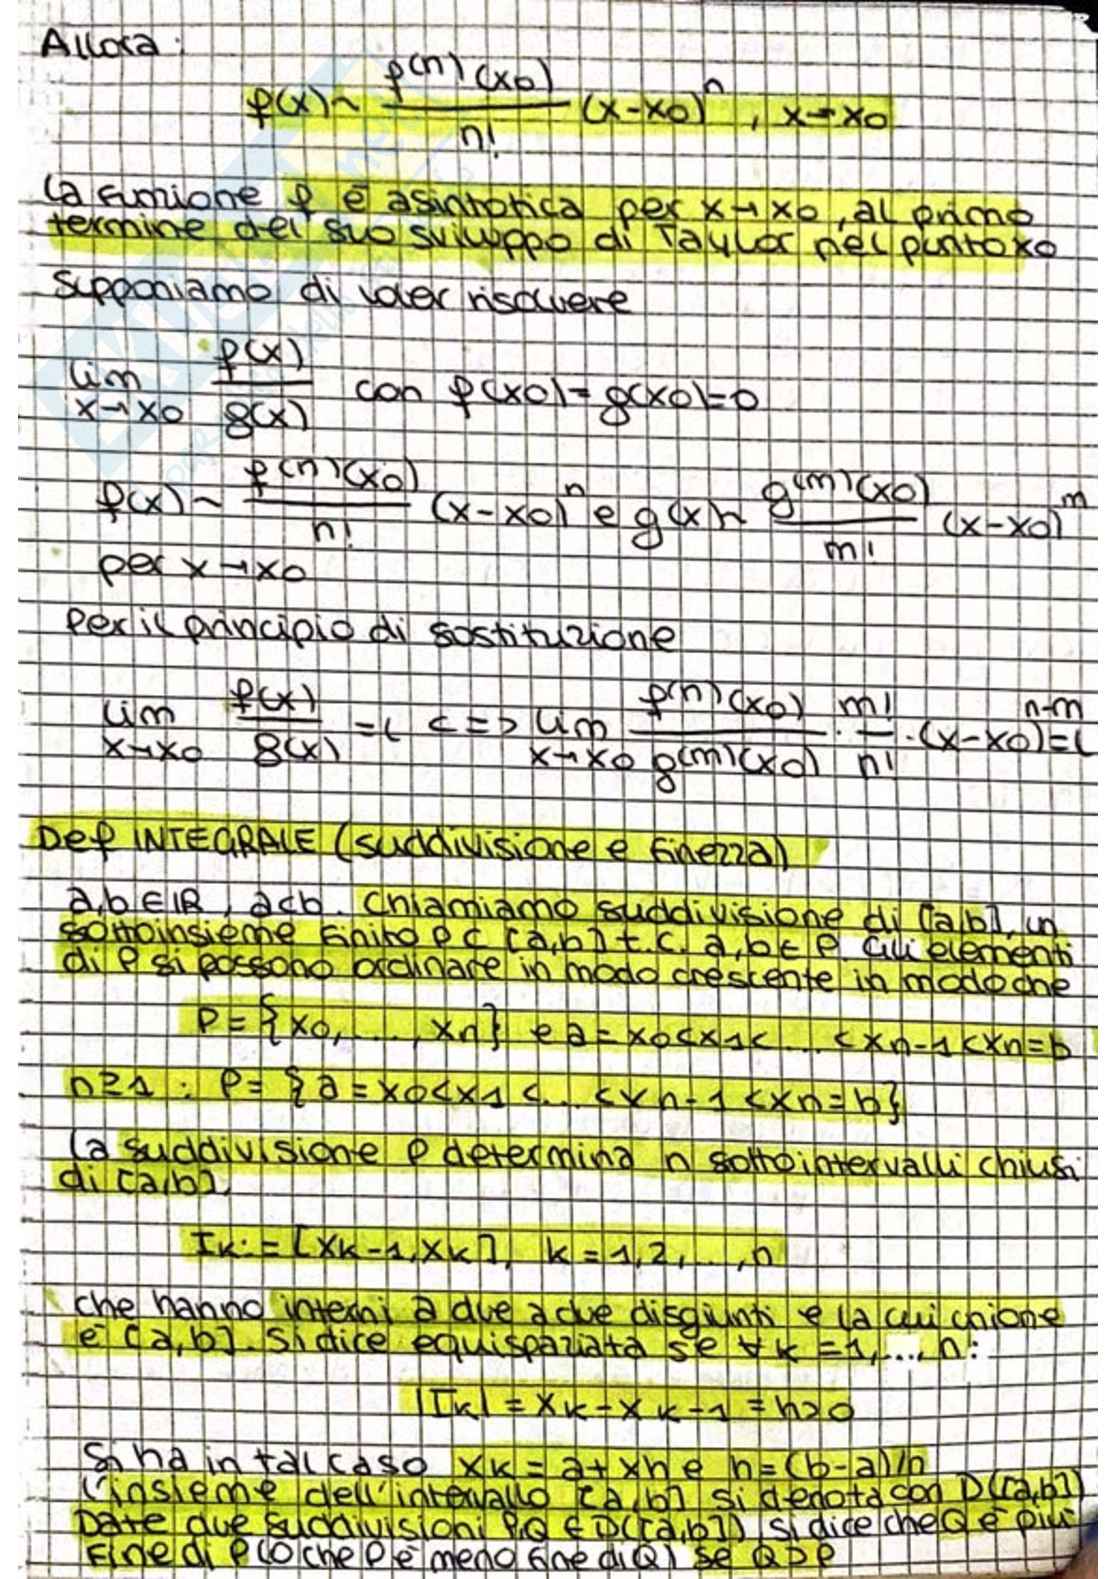 Allora:
f(x) ~ f^(n)(x0)/n! (x-x0)^n, x→x0
La funzione f è asintotica per x→x0, al primo
termine del suo sviluppo di Taylor nel punto x0
Supponiamo di voler risolvere
lim x→x0 f(x)/g(x) con f(x0)=g(x0)=0
f(x) ~ f^(n)(x0)/n! (x-x0)^n e g(x) ~ g^(m)(x0)/m! (x-x0)^m
per x→x0
Per il principio di sostituzione
lim x→x0 f(x)/g(x) = l <=> lim x→x0 f^(n)(x0)/g^(m)(x0) · m!/n! · (x-x0)^n-m = l
Def INTEGRALE (suddivisione e finezza)
a,b∈ℝ, a<b. Chiamiamo suddivisione di [a,b], un
sottoinsieme finito P⊂[a,b] t.c. a,b∈P. Gli elementi
di P si possono ordinare in modo crescente in modo che
P={x0,....,xn} e a=x0<x1<....<xn-1<xn=b
n≥1: P={a=x0<x1<...<xn-1<xn=b}
La suddivisione P determina n sottointervalli chiusi
di [a,b].
Ik:=[xk-1,xk], k=1,2,...,n
che hanno interni a due a due disgiunti e la cui unione
è [a,b]. Si dice equispaziata se ∀k=1,...,n:
|Ik|=xk-xk-1=h>0
Si ha in tal caso xk=a+xh e h=(b-a)/n
L'insieme dell'intervallo [a,b] si denota con D([a,b])
Date due suddivisioni P,Q∈D([a,b]) si dice che Q è più
fine di P (o che P è meno fine di Q) se Q⊃P